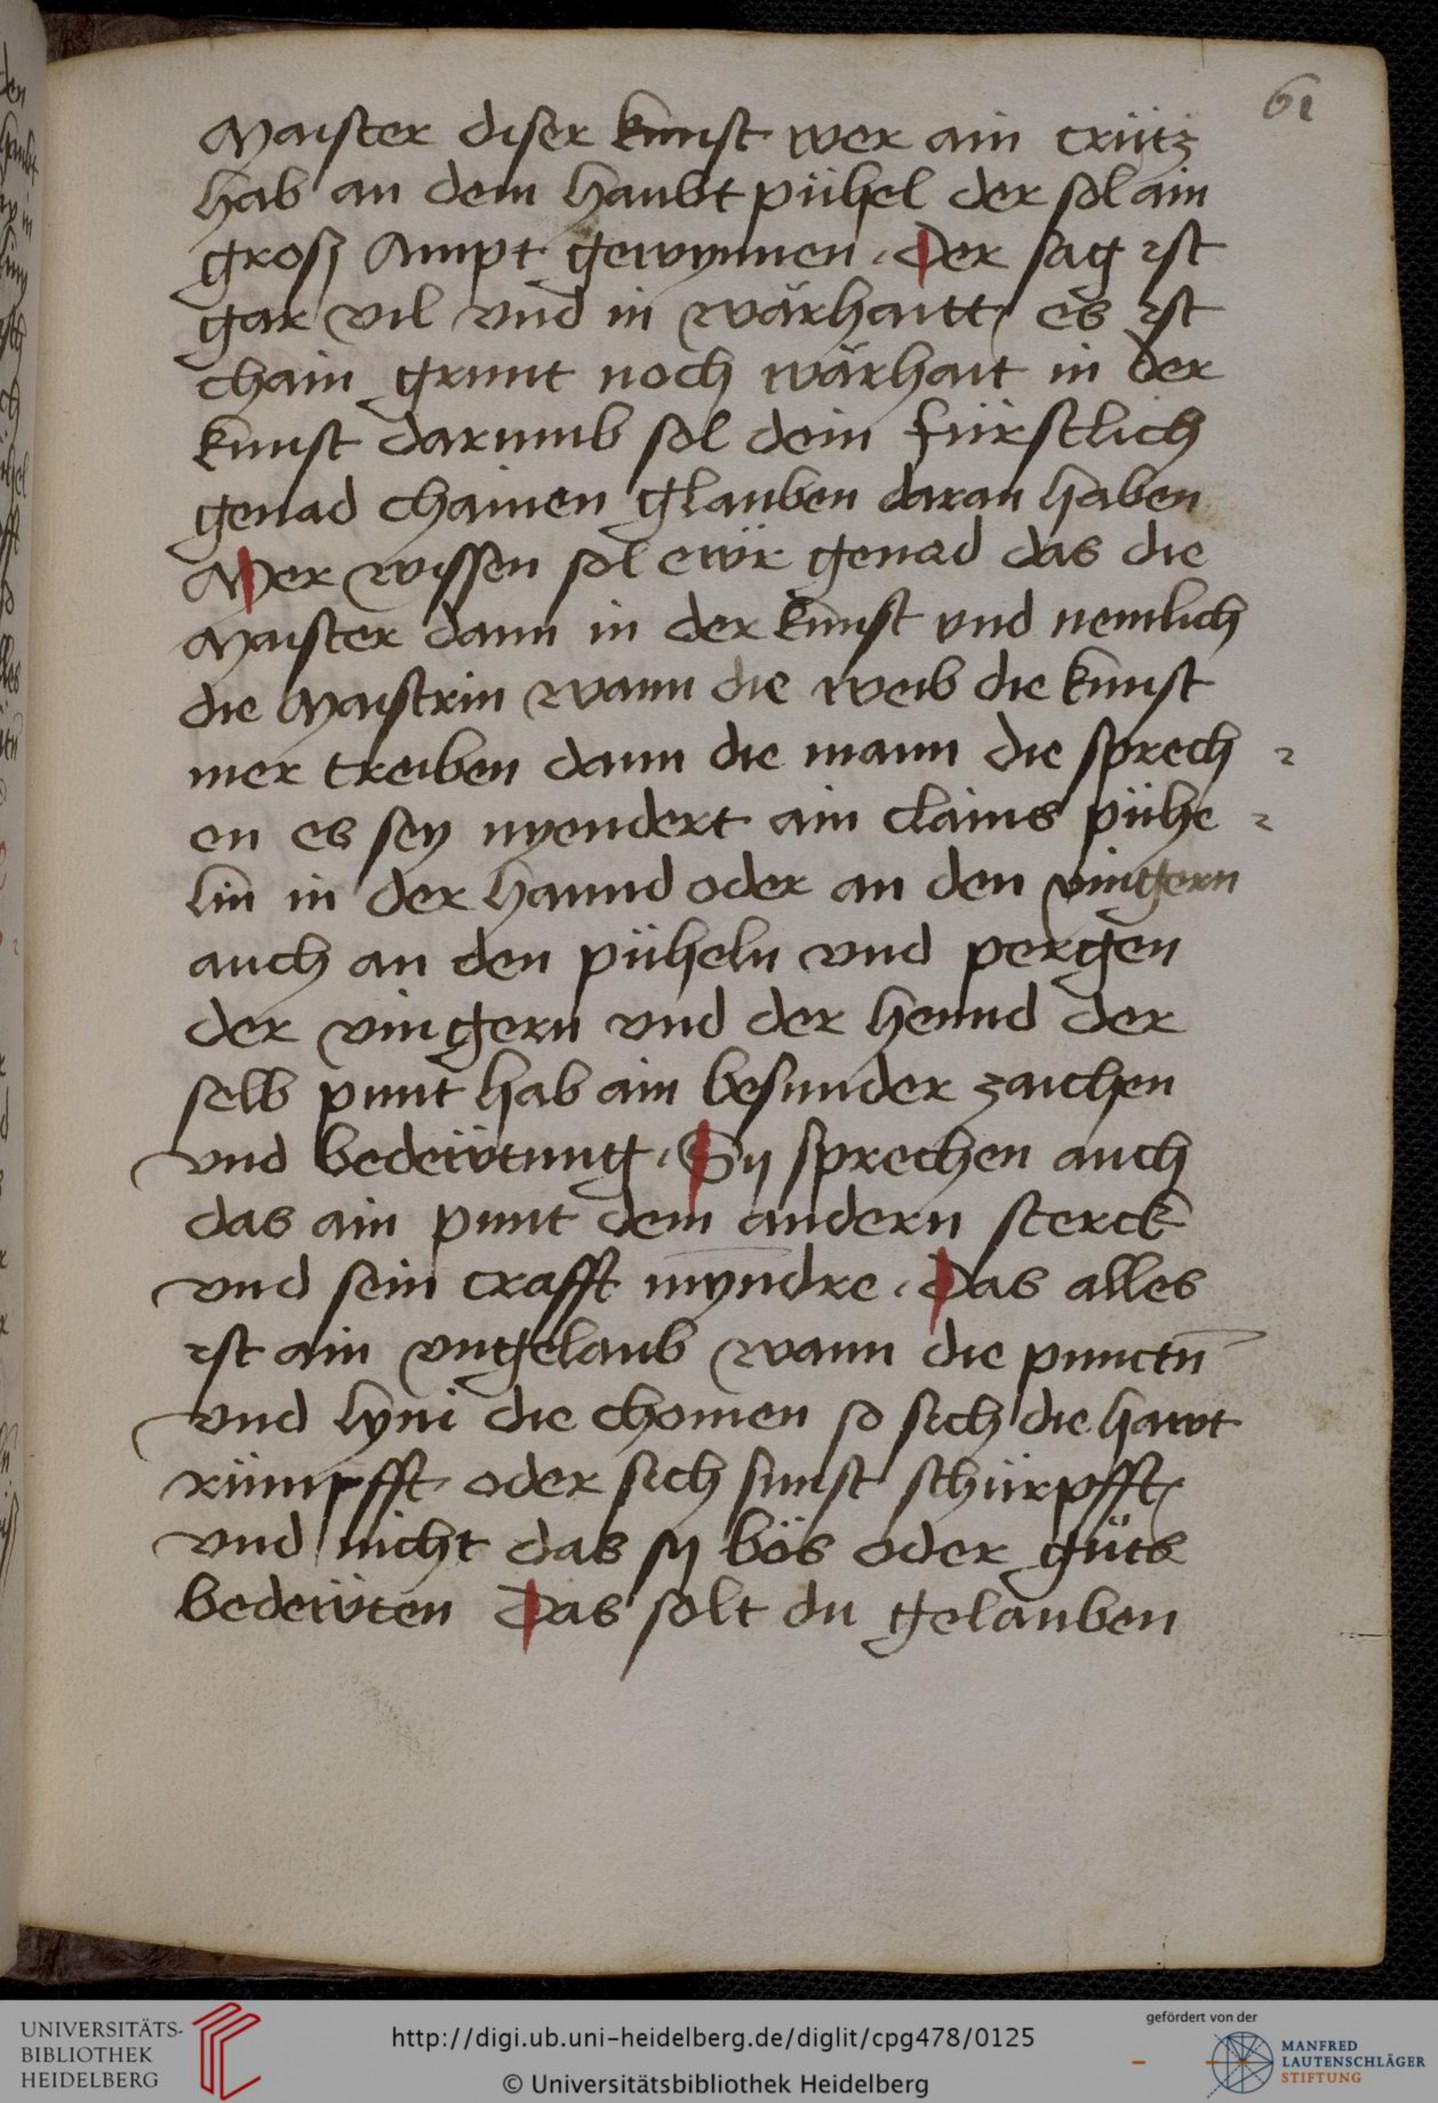 61
Maister diser kunst wer ain crütz
hab an dem haubt pühel der sol ain
grosz Ampt gewynnen. Der sag ist
gar vil vnd in wärhaitt es ist
chain grunt noch wärhait in der
kunst darumb sol dein fürstlich
genad chainen glauben daran haben
Mer wissen sol ewr genad das die
Maister dann in der kunst vnd nemlich
die Maistrin wann die weib die kunst
mer treiben dann die mann die sprech
en es sey nyendert ain clains pühe
lin in der hannd oder an den vingern
auch an den püheln vnd pergen
der vingern vnd der hennd der
selb punt hab ain besunder zaichen
vnd bedewtung. Sy sprechen auch
das ain punt dem andern sterck
vnd sein crafft myndre. Das alles
ist ain vngelaub wann die punctn̄
vnd lyni die chomen so sich die hawt
rümpfft oder sich sunst schürpfft
vnd nicht das sy bös oder güts
bedewten Das solt du gelauben
UNIVERSITÄTS-
BIBLIOTHEK
HEIDELBERG
http://digi.ub.uni-heidelberg.de/diglit/cpg478/0125
© Universitätsbibliothek Heidelberg
gefördert von der
MANFRED
LAUTENSCHLÄGER
STIFTUNG